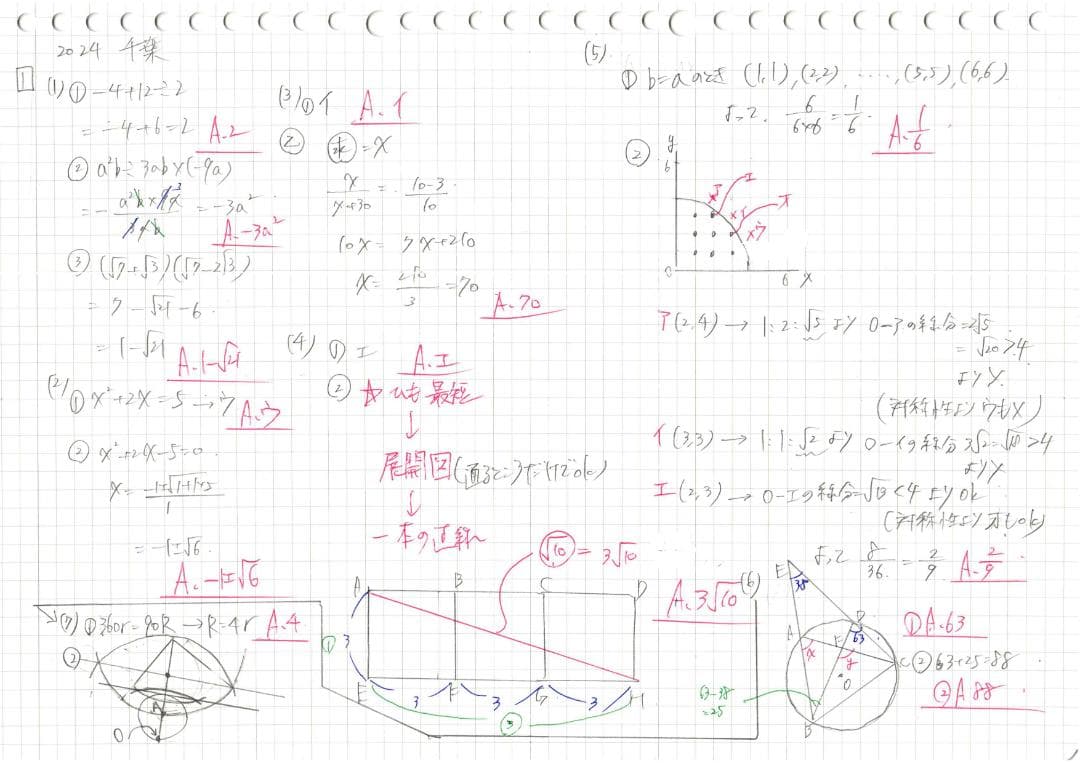 2024 千葉
1
(1) ① −4+12÷2
= −4+6=2 A.2
② a²b÷3ab×(−9a)
= −3a²
A.−3a²
③ (√7+√3)(√7−2√3)
= 7−√21−6
= 1−√21
A.1−√21
(2) ① x²+2x=5→ウ A.ウ
② x²+2x−5=0
x= −1±√1+1×5 / 1
= −1±√6
A.−1±√6
(3) ① イ A.イ
② 水=x
x/x+30 = 10−3/10
10x= 7x+210
x= 210/3 =70
A.70
(4) ① エ A.エ
② ☆ひも最短
↓
展開図(通るところだけでok)
↓
一本の直線
√10 = 3√10
A B C D
3
①
E F G H
3 3 3
③
A.3√10
(5)
① b=aのとき (1,1),(2,2), ……,(5,5),(6,6)
よって、 6/6×6 = 1/6
A.1/6
②
y
6
ア エ
イ オ
ウ
0 6 x
ア(2,4) → 1:2:√5 より 0−アの線分=2√5
= √20>4
よりX
(対称性よりウもX)
イ(3,3) → 1:1:√2 より 0−イの線分 3√2=√18>4
よりX
エ(2,3) → 0−エの線分=√13<4 よりok
(対称性よりオもok)
よって 8/36 = 2/9 A.2/9
(6)
E
38
D
63
A F
x y
C
O
B
63−38
=25
① A.63
② 63+25=88
② A 88
(7) ① 360r=90R →R=4r A.4
②
A
O